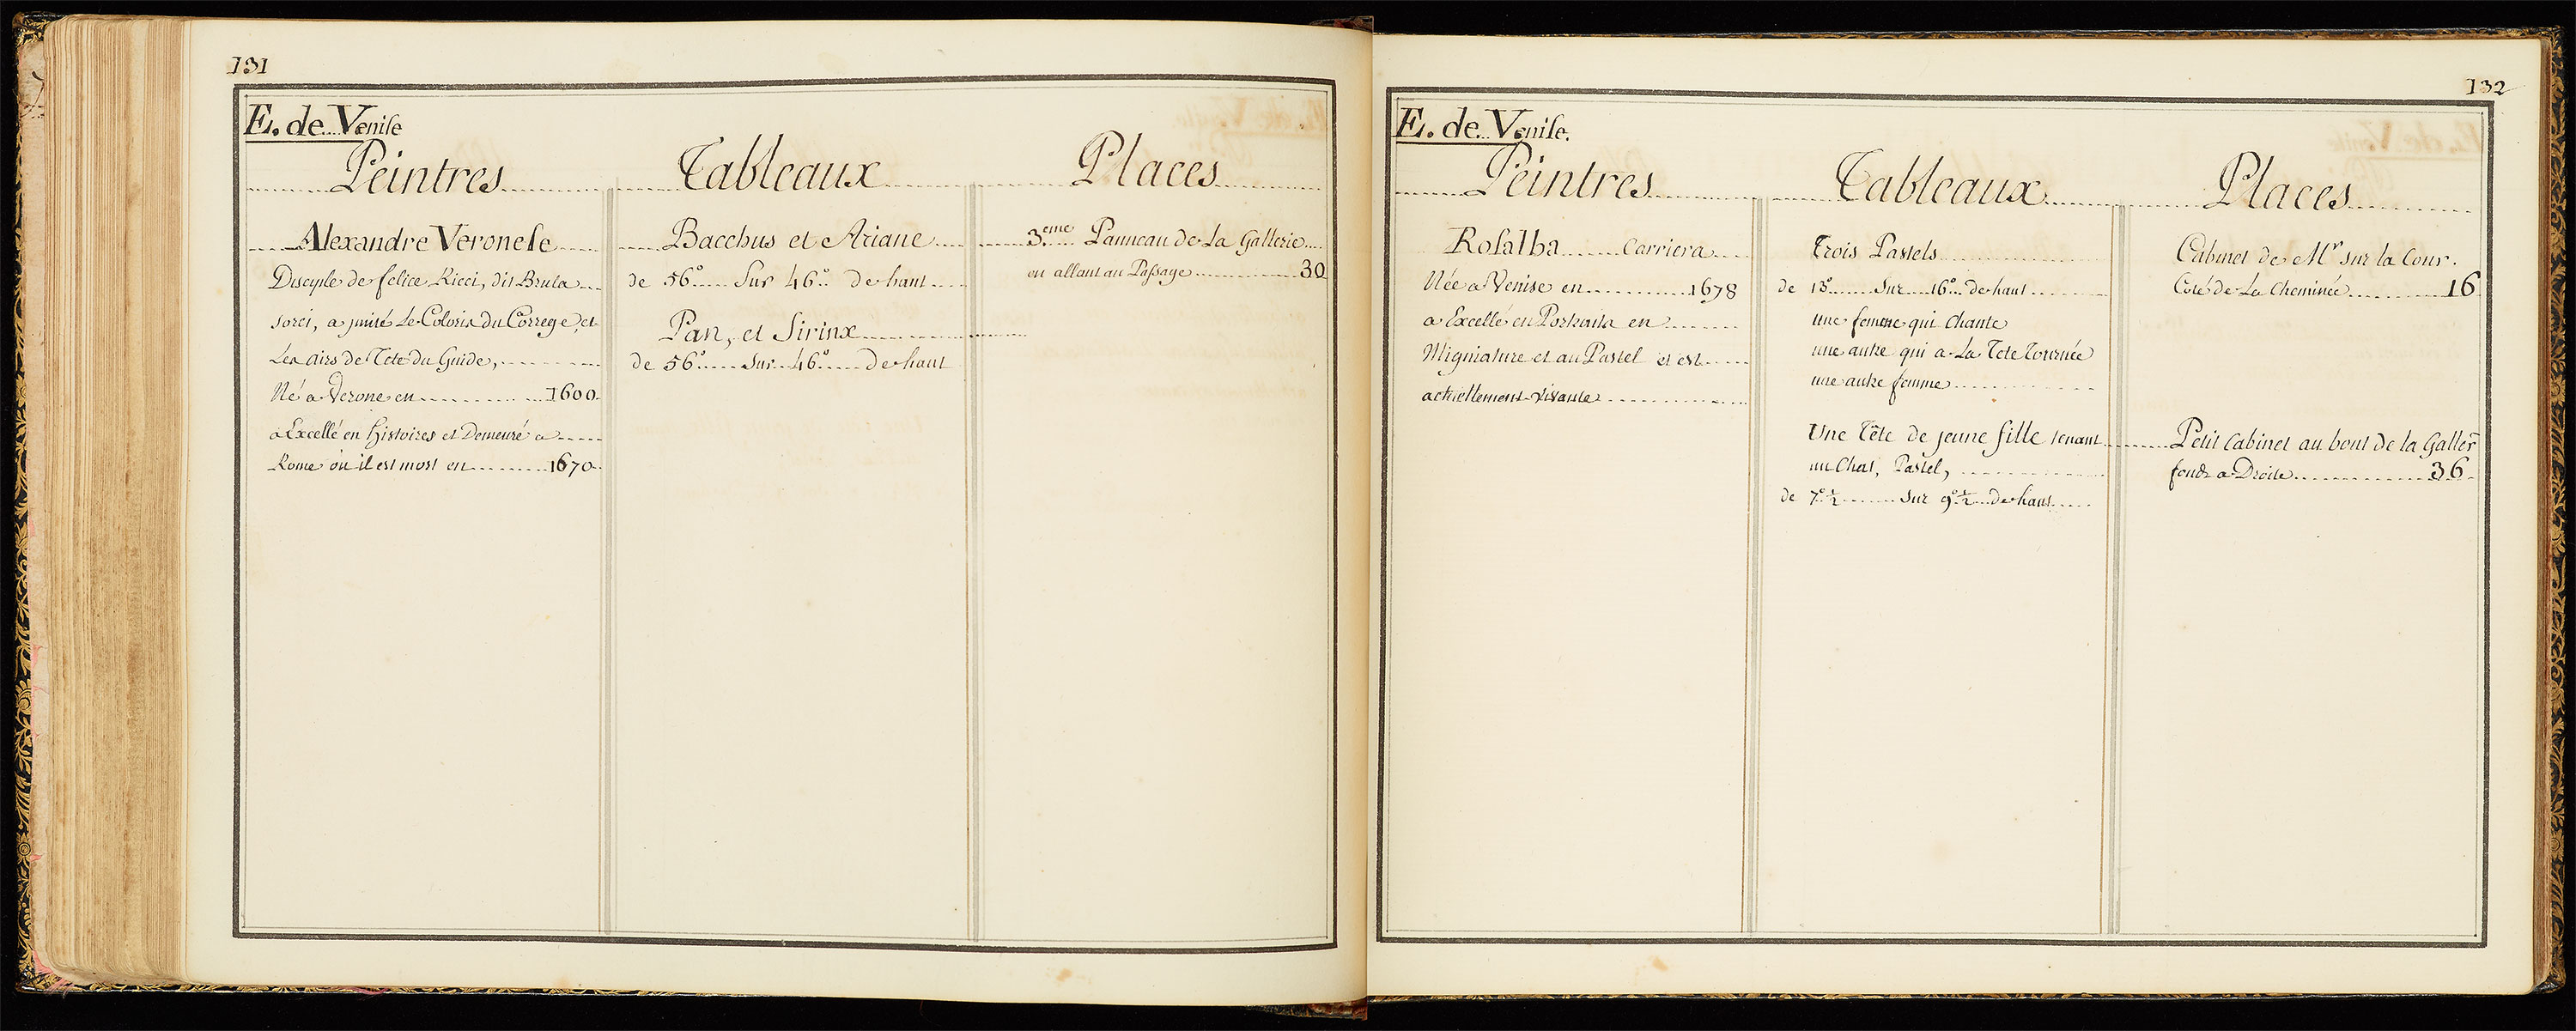 131
E. de Venise
Peintres Tableaux Places
Alexandre Veronese
Disciple de felice Ricci, dit Brula
sorci, a jmité Le Coloris du Correge, et
Les airs de Tete du Guide,
Né a Verone en 1600
a Excellé en histoires et Demeuré a
Rome ou il est mort en 1670
Bacchus et Ariane
de 56° Sur 46° de haut
Pan, et Sirinx
de 56° Sur 46° de haut
3.eme Panneau de La Gallerie
en allant au Passage 30
132
E. de Venise.
Peintres Tableaux Places
Rosalba Carriera
Née a Venise en 1678
a Excellé en Portraits en
Migniature et au Pastel et est
actuellement vivante
Trois Pastels
de 13° Sur 16° de haut
une femme qui Chante
une autre qui a La Tete Tournée
une autre femme
Une Tête de jeune fille tenant
un Chat, Pastel,
de 7° ½ Sur 9° ½ de haut
Cabinet de Mr sur la Cour.
Coté de La Cheminée 16
Petit Cabinet au bout de la Galler
fond a Droite 36